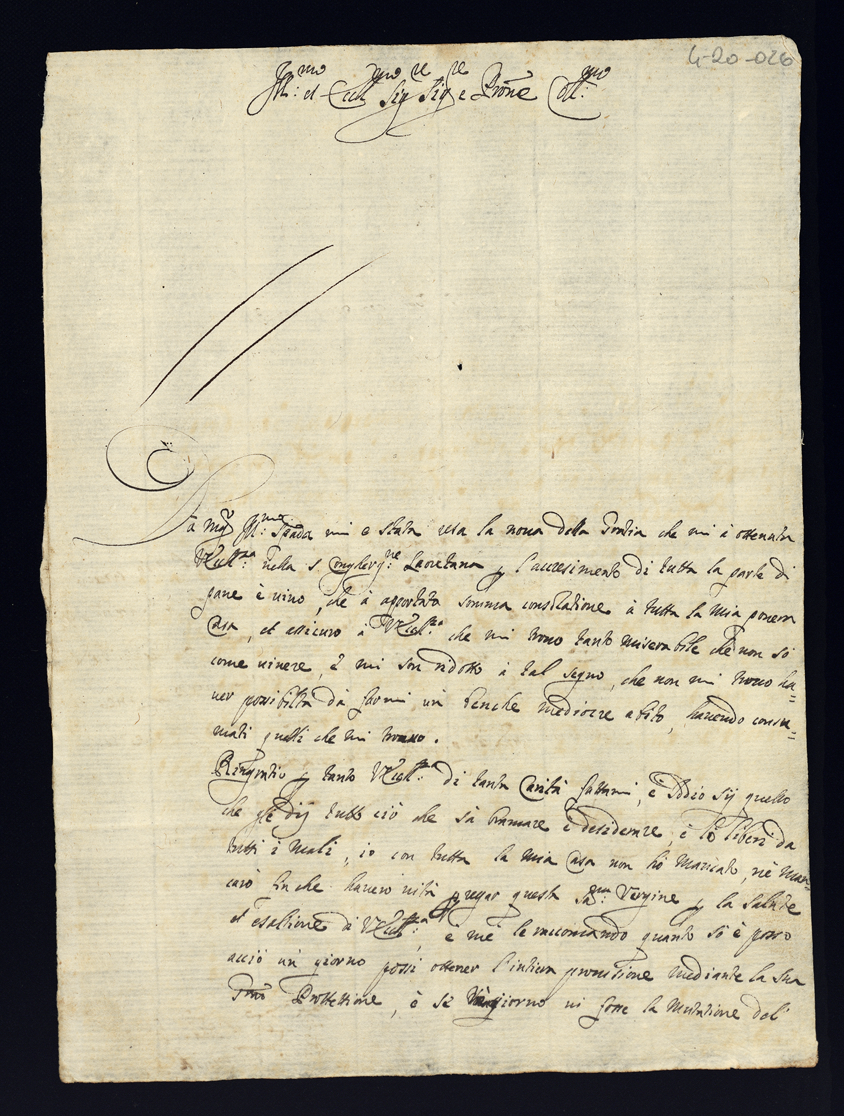 4-20-026
Ill:mo et Ecc:mo Sig:re Sig:re e Prone Coll:mo
Da Mgr Ill:mo Spada mi e stata resa la noua della Gratia che mi à ottenuta
VEcc:za nella S Congreg:ne Lauretana p l'accresimento di tutta la parte di
pane è uino, che à apportata somma consolatione à tutta la mia pouera
Casa, et assicuro à VEcc:za che mi trouo tanto miserabile che non sò
come uiuere, è mi son ridotto à tal segno, che non mi trouo ha=
uer possibiltà da farmi un benche mediocre abito, hauendo consu=
mati quelli che mi trouauo.
Ringratio p tanto VEcc:za di tanta Carità fattami, è Iddio sij quello
che gli dij tutto ciò che sà bramare è desiderare, è lo liberi da
tutti i mali, io con tutta la mia Casa non hò mancato, nè man=
carò finche hauerò uita pregar questa SS:ma Vergine p la salute
et esaltione di VEcc:za, è me le raccomando quanto sò è posso
acciò un giorno possi ottener l'intiera prouisione mediante la sua
Protettione, è sè giorno ui fosse la mutatione del'